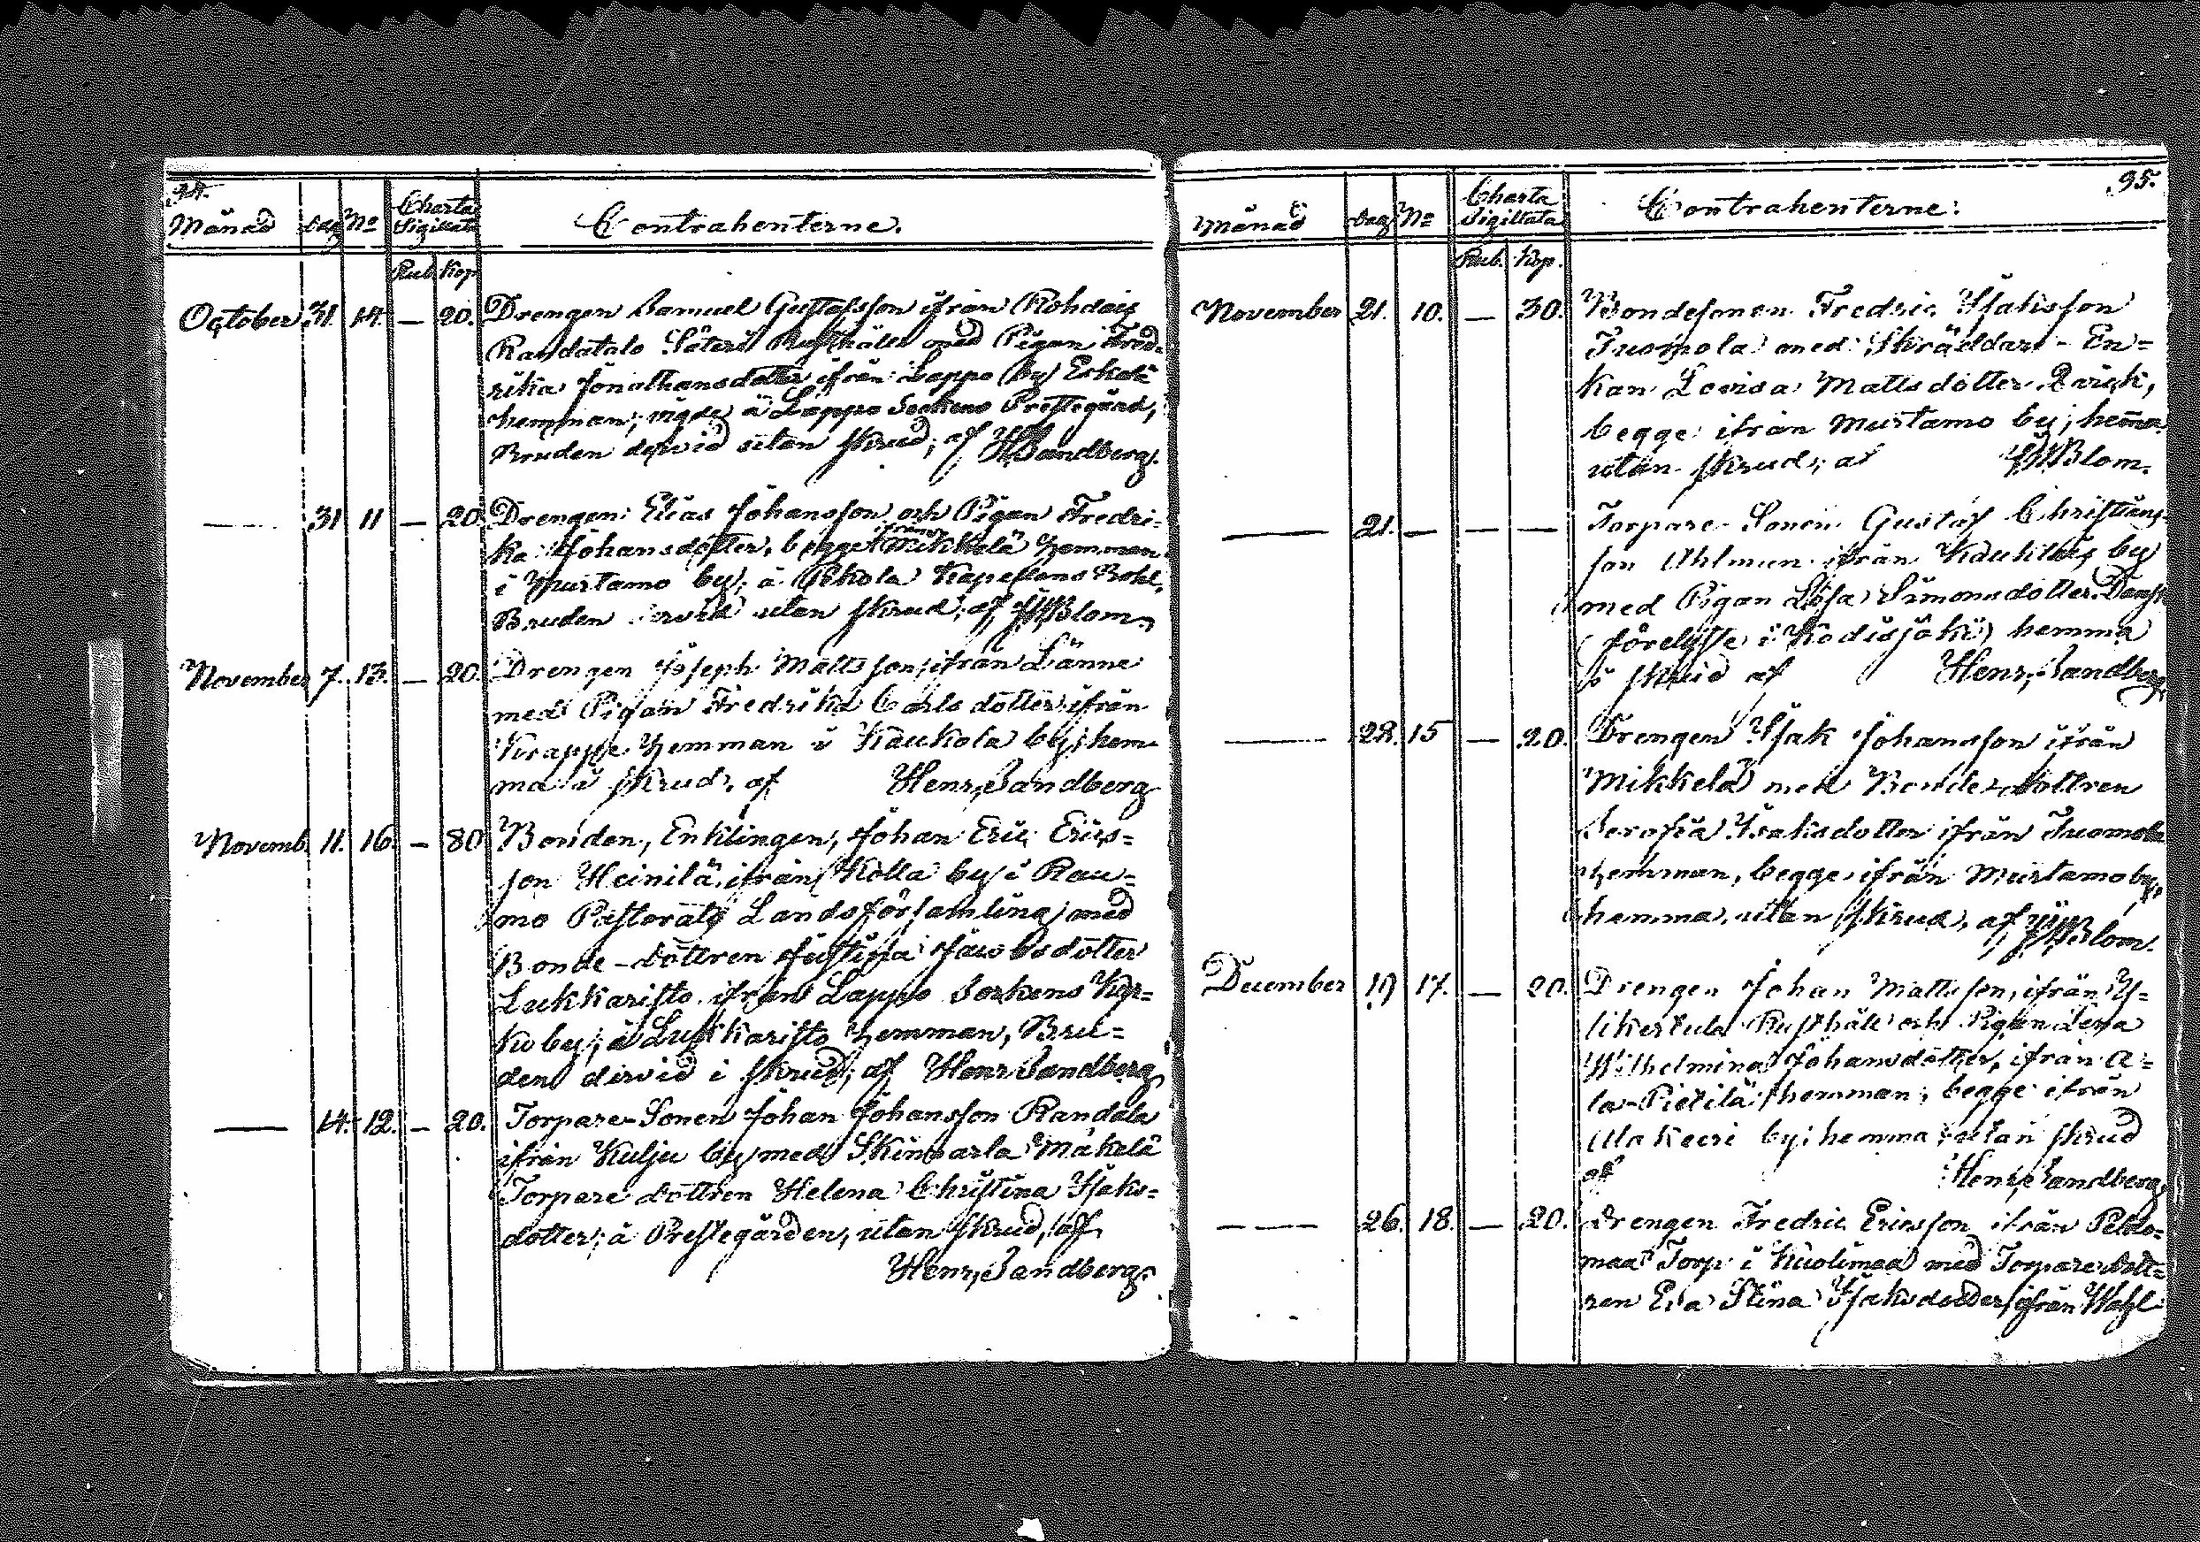 94.
Månad Dag No Charta Sigillata Contrahenterne.
Rub. Kop.
October 31. 14. — 20. Drengen Samuel Gustafsson ifrån Kohdais
Randatalo Säteri Rusthåll med Pigan Fred-
rika Jonathansdotter ifrån Lappo by Eskola
hemman; vigde å Lappo Sockens Prestegård,
Bruden dervid utan skrud; af H. Sandberg.
— 31 11 — 20. Drengen Elias Johansson och Pigan Fredri-
ka Johansdotter, begge ifrån Mikkelä hemman
i Murtamo by; å Kapellans Bohl,
Bruden dervid utan skrud; af Blom.
November 7. 13. — 20. Drengen Joseph Mattsson, ifrån Länne
med Pigan Fredrika Carlsdotter ifrån
Krappe hemman i Kaukola by; hem-
ma i skrud, af Henr. Sandberg
Novemb. 11. 16. — 80. Bonden, Enklingen, Johan Eric Erics-
son Heinilä, ifrån Kolla by i Rau-
mo Pastorats Landsförsamling med
Bonde-dottren Justina Jacobsdotter
Lukkaristo ifrån Lappo Sockens Kyr-
koby; å Lukkaristo hemman, Bru-
den dervid i skrud; af Henr. Sandberg
— 14. 12. — 20. Torpare-Sonen Johan Johansson Randala
ifrån Kulju by med Skinnarla Mäkelä
Torpare dottren Helena Christina Isaks-
dotter; å Prestegården, utan skrud, af
Henr. Sandberg.
95.
Månad Dag No Charta Sigillata Contrahenterne:
Rub. Kop.
November 21. 10. — 30. Bondesonen Fredric Isaksson
Tuomola med Skräddare-En-
kan Lovisa Mattsdotter
begge ifrån Murtamo by; hemma
utan skrud; af Blom.
— 21. — — — Torpare-Sonen Gustaf Christians-
son Ahlman ifrån by
med Pigan Lisa Simonsdotter
(förelyste i Kodisjoki) hemma
i skrud af Henr. Sandberg
— 28. 15 — 20. Drengen Isak Johansson ifrån
Mikkelä med Bonde-dottren
Serafia Isaksdotter ifrån Tuomola
hemman, begge ifrån Murtamo by,
hemma, utan skrud, af Blom.
December 19 17. — 20. Drengen Johan Mattsson, ifrån Y-
likertula Rusthåll och Pigan Lena
Wilhelmina Johansdotter, ifrån A-
la-Pietilä hemman; begge ifrån
Alakeeri by; hemma; utan skrud
af Henr. Sandberg
— 26. 18. — 20. Drengen Fredric Ericsson ifrån Pelto-
maa Torp i Kuolimaa med Torpare dott-
ren Eva Stina Isaksdotter ifrån Wahl-